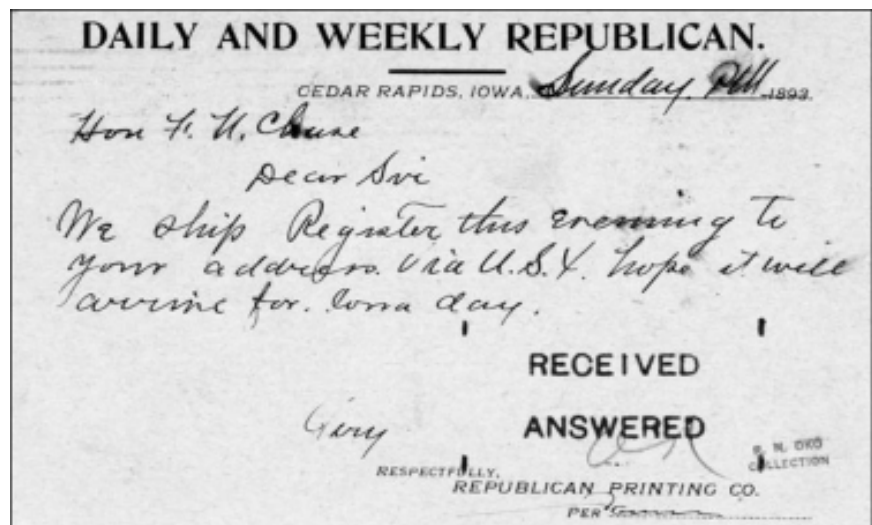 DAILY AND WEEKLY REPUBLICAN.
CEDAR RAPIDS, IOWA, Sunday, PM 1893.
Hon F. N. Chase
Dear Sir
We ship Register this evening to
your address. via U.S.X. hope it will
arrive for. Iowa day.
RECEIVED
ANSWERED
N. OKO
COLLECTION
RESPECTFULLY,
REPUBLICAN PRINTING CO.
PER